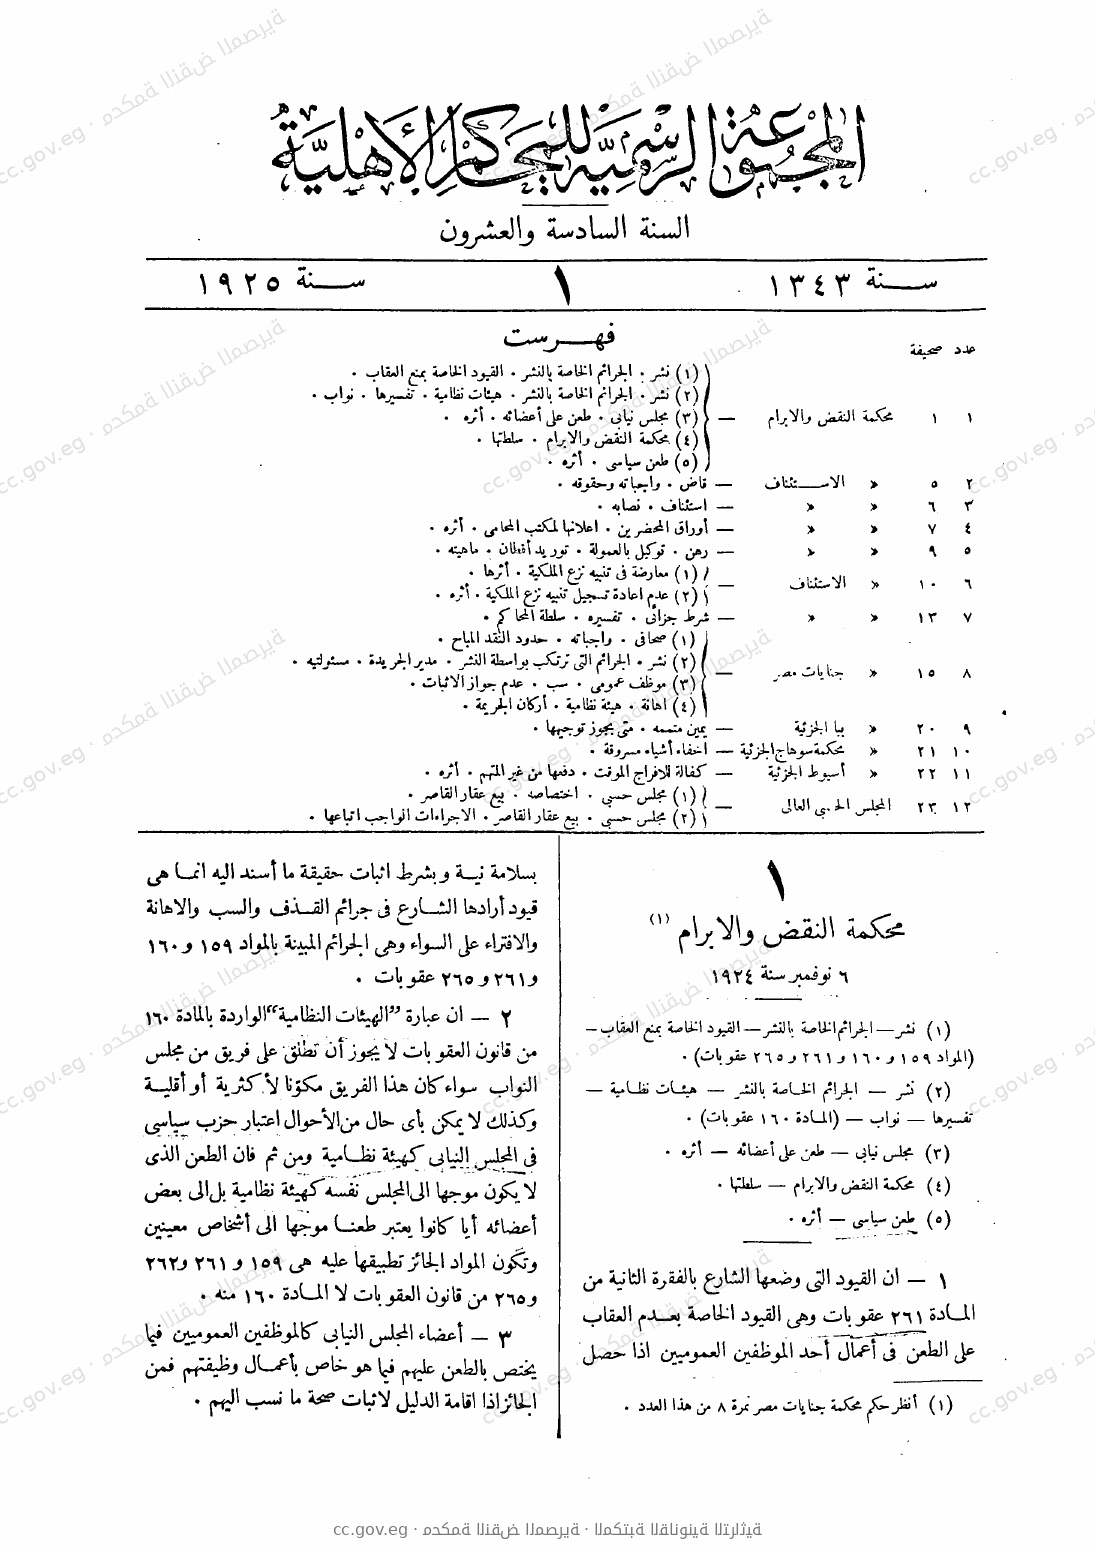 المجموعة الرسمية للمحاكم الأهلية
السنة السادسة والعشرون
سنة ١٣٤٣ ١ سنة ١٩٢٥
فهرست
عدد صحيفة
١ ١ محكمة النقض والابرام —
(١) نشر . الجرائم الخاصة بالنشر . القيود الخاصة بمنع العقاب .
(٢) نشر . الجرائم الخاصة بالنشر . هيئات نظامية . تفسيرها . نواب .
(٣) مجلس نيابى . طعن على أعضائه . أثره .
(٤) محكمة النقض والابرام . سلطتها .
(٥) طعن سياسى . أثره .
٢ ٥ » الاستئناف — قاض . واجباته وحقوقه .
٣ ٦ » » — استئناف . نصابه .
٤ ٧ » » — أوراق المحضرين . اعلانها لمكتب المحامى . أثره .
٥ ٩ » » — رهن . توكيل بالعمولة . توريد أقطان . ماهيته .
٦ ١٠ » الاستئناف —
(١) معارضة فى تنبيه نزع الملكية . أثرها .
(٢) عدم اعادة تسجيل تنبيه نزع الملكية . أثره .
٧ ١٣ » » — شرط جزائى . تفسيره . سلطة المحاكم .
٨ ١٥ » جنايات مصر —
(١) صحافى . واجباته . حدود النقد المباح .
(٢) نشر . الجرائم التى ترتكب بواسطة النشر . مدير الجريدة . مسئوليته .
(٣) موظف عمومى . سب . عدم جواز الاثبات .
(٤) اهانة . هيئة نظامية . أركان الجريمة .
٩ ٢٠ » ببا الجزئية — يمين متممه . متى يجوز توجيهها .
١٠ ٢١ » محكمة سوهاج الجزئية — اخفاء أشياء مسروقة .
١١ ٢٢ » أسيوط الجزئية — كفالة للافراج الموقت . دفعها من غير المتهم . أثره .
١٢ ٢٣ المجلس الحسبى العالى —
(١) مجلس حسبى . اختصاصه . بيع عقار القاصر .
(٢) مجلس حسبى . بيع عقار القاصر . الاجراءات الواجب اتباعها .
١
محكمة النقض والابرام (١)
٦ نوفمبر سنة ١٩٢٤
(١) نشر — الجرائم الخاصة بالنشر — القيود الخاصة بمنع العقاب —
(المواد ١٥٩ و ١٦٠ و ٢٦١ و ٢٦٥ عقوبات) .
(٢) نشر — الجرائم الخاصة بالنشر — هيئات نظامية —
تفسيرها — نواب — (المادة ١٦٠ عقوبات) .
(٣) مجلس نيابى — طعن على أعضائه — أثره .
(٤) محكمة النقض والابرام — سلطتها .
(٥) طعن سياسى — أثره .
١ — ان القيود التى وضعها الشارع بالفقرة الثانية من
المادة ٢٦١ عقوبات وهى القيود الخاصة بعدم العقاب
على الطعن فى أعمال أحد الموظفين العموميين اذا حصل
(١) أنظر حكم محكمة جنايات مصر نمرة ٨ من هذا العدد .
بسلامة نية وبشرط اثبات حقيقة ما أسند اليه انما هى
قيود أرادها الشارع فى جرائم القذف والسب والاهانة
والافتراء على السواء وهى الجرائم المبينة بالمواد ١٥٩ و ١٦٠
و ٢٦١ و ٢٦٥ عقوبات .
٢ — ان عبارة "الهيئات النظامية" الواردة بالمادة ١٦٠
من قانون العقوبات لا يجوز أن تطلق على فريق من مجلس
النواب سواء كان هذا الفريق مكوّنا لأكثرية أو أقلية
وكذلك لا يمكن بأى حال من الأحوال اعتبار حزب سياسى
فى المجلس النيابى كهيئة نظامية ومن ثم فان الطعن الذى
لا يكون موجها الى المجلس نفسه كهيئة نظامية بل الى بعض
أعضائه أيا كانوا يعتبر طعنا موجها الى أشخاص معينين
وتكون المواد الجائز تطبيقها عليه هى ١٥٩ و ٢٦١ و ٢٦٢
و ٢٦٥ من قانون العقوبات لا المادة ١٦٠ منه .
٣ — أعضاء المجلس النيابى كالموظفين العموميين فيما
يختص بالطعن عليهم فيما هو خاص بأعمال وظيفتهم فمن
الجائز اذا اقامة الدليل لاثبات صحة ما نسب اليهم .
cc.gov.eg · محكمة النقض المصرية · المكتبة القانونية التراثية